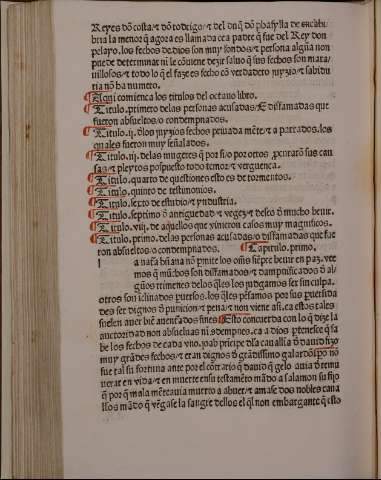 Reyes dõ costa/⁊ dõ rodrigo/⁊ del duq̃ dõ phasylla de
bria la menor q̃ agora es llamada cea padre q̃ fue del Rey don
pelayo. los fechos de dios son muy fondos/⁊ persona alguna non
puede determinar ni le conviene dezir saluo q̃ sus fechos son mara
uillosos/⁊ todo lo q̃ el faze es fecho cõ verdadero iuyzio/⁊ sabidu
ria nõ ha numero.
¶ Aqui comiença los titulos del octauo libro.
¶ Titulo. primero de las personas acusadas/⁊ diffamadas que
fueron absueltos/o condempnados.
¶ Titulo. ii. dlos iuyzios fechos priuada mẽte/⁊ a partados. los
quales fueron muy señalados.
¶ Titulo. iii. delas mugeres q̃ por si/o por otros sus cau
sas/⁊ pleytos pospuesto todo temor/⁊ verguença.
¶ Titulo. quarto de questiones esto es de tormentos.
¶ Titulo. quinto de testimonios.
¶ Titulo. sexto de estudio/⁊ yndustria.
¶ Titulo. septimo d̃ antiguedad/⁊ vegez/⁊ deseo d̃ mucho beuir.
¶ Titulo. viii. de aquellos que vinieron casos muy magnificos.
¶ Titulo. primo. delas personas acusadas/o diffamadas que fue
ron absueltos/o condempnados. ¶ Capitulo. primo.
l a nat̃a hũana nõ p̃mite los oñs siẽpre beuir en paz. vee
mos q̃ muchos son diffamados/⁊ dampnificados d̃ al
gũos crimenes delos q̃les los judgamos ser sin culpa.
otros son iclinados puersos. los q̃les pẽsamos por sus puersida
des ser dignos d̃ punicion/⁊ pena/⁊ non viene assi. ca estos tales
suelen auer biẽ auenturados fines ¶ Esto concuerda con lo q̃ dize la
auctoridad non absueluas ni cõdempnes. ca a dios ptenesce q̃ sa
be los fechos de cada vno. joab pricipe dla caualleria d̃ dauid fizo
muy grãdes fechos/⁊ eran dignos d̃ grãdissimo galardõ
fue tal su fortuna ante por el cõtrario q̃ dauid q̃ gelo auia d̃ remu
nerar en vida/⁊ en muerte en su testamẽto mãdo a salamon su fijo
q̃ por q̃ mala mẽte auia muerto a abner/⁊ amase dos nobles caua
llos mãdo q̃ vẽgase la sangre dellos el q̃l non embargante q̃ esto